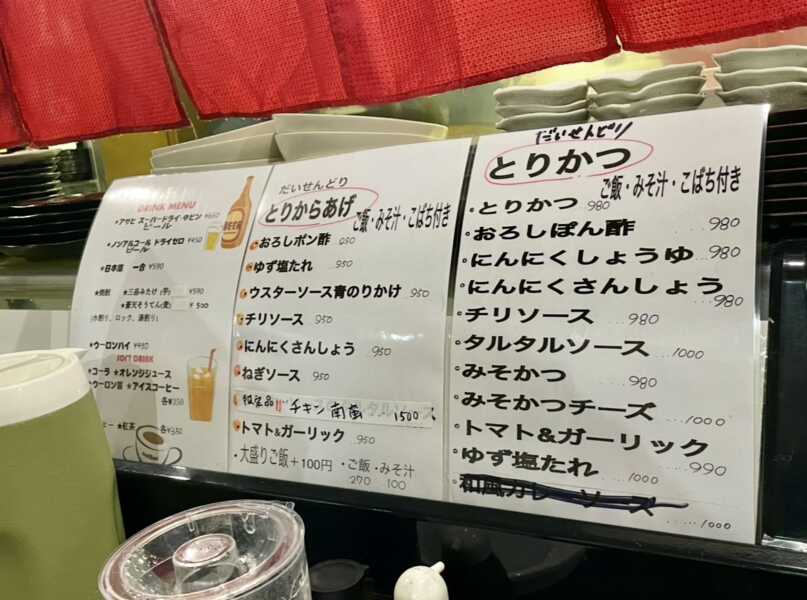 DRINK MENU
★アサヒ スーパードライ 中ビン ¥650
ビール
BEER
★ノンアルコール ドライゼロ ¥450
ビール
★日本酒 一合 ¥590
★焼酎 ★三岳みたけ(芋) ¥590
★蒼天そうてん(麦) ¥500
(水割り、ロック、湯割り)
★ウーロンハイ ¥450
SOFT DRINK
★コーラ ★オレンジジュース
★ウーロン茶 ★アイスコーヒー
各¥350
★紅茶 各¥350
だいせんどり
とりからあげ
ご飯・みそ汁・こばち付き
おろしポン酢 950
ゆず塩たれ 950
ウスターソース青のりかけ 950
チリソース 950
にんにくさんしょう 950
ねぎソース 950
チキン南蛮 1500
トマト&ガーリック 950
・大盛りご飯+100円 ・ご飯・みそ汁
270 100
だいせんどり
とりかつ
ご飯・みそ汁・こばち付き
・とりかつ 980
・おろしぽん酢 980
・にんにくしょうゆ 980
・にんにくさんしょう 980
・チリソース ...980
・タルタルソース ...1000
・みそかつ 980
・みそかつチーズ ....1000
・トマト&ガーリック ....990
・ゆず塩たれ ...1000
・和風カレーソース .....1000